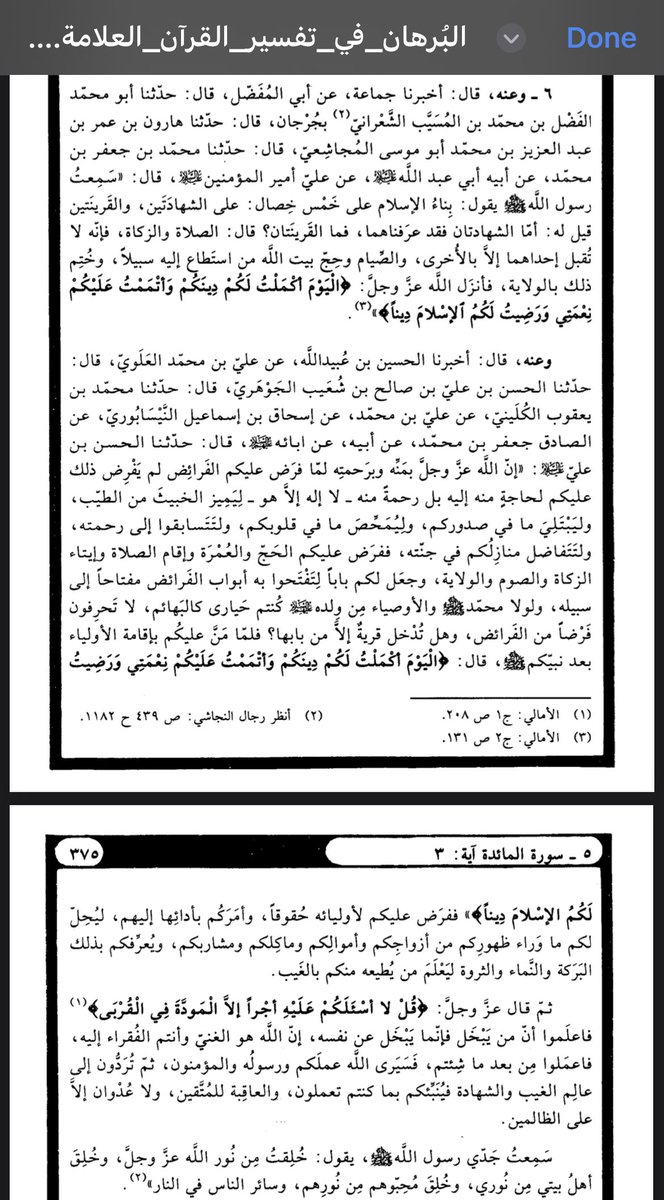 البُرهان_في_تفسير_القرآن_العلامة....
Done
٦ ـ وعنه، قال: أخبرنا جماعة، عن أبي المُفَضّل، قال: حدّثنا أبو محمّد
الفَضْل بن محمّد بن المُسَيَّب الشَّعْرانيّ(٢) بجُرْجان، قال: حدّثنا هارون بن عمر بن
عبد العزيز بن محمّد أبو موسى المُجاشِعيّ، قال: حدّثنا محمّد بن جعفر بن
محمّد، عن أبيه أبي عبد اللّه عليه السلام، عن عليّ أمير المؤمنين عليه السلام، قال: «سَمِعتُ
رسول اللّه ﷺ يقول: بِناءُ الإسلام على خَمْس خِصال: على الشهادَتَين، والقَرينَتين
قيل له: أمّا الشهادتان فقد عرَفناهما، فما القَرينَتان؟ قال: الصلاة والزكاة، فإنّه لا
تُقبل إحداهما إلاَّ بالأُخرى، والصِّيام وحِجّ بيت اللّه من استَطاع إليه سبيلاً، وخُتِم
ذلك بالولاية، فأنزَل اللّه عزَّ وجلَّ: ﴿الْيَوْمَ أكْمَلْتُ لَكُمْ دِينَكُمْ وَأتْمَمْتُ عَلَيْكُمْ
نِعْمَتِي وَرَضِيتُ لَكُمُ الإسْلامَ دِيناً﴾»(٣).
وعنه، قال: أخبرنا الحسين بن عُبيداللَّه، عن عليّ بن محمّد العَلَويّ، قال:
حدّثنا الحسن بن عليّ بن صالح بن شُعَيب الجَوْهَريّ، قال: حدّثنا محمّد بن
يعقوب الكُلَينيّ، عن عليّ بن محمّد، عن إسحاق بن إسماعيل النَّيْسَابُوريّ، عن
الصادق جعفر بن محمّد، عن أبيه، عن ابائه عليه السلام، قال: حدّثنا الحسن بن
عليّ عليه السلام: «إنّ اللّه عزَّ وجلَّ بمَنِّه وبرَحمتِه لمّا فرَض عليكم الفَرائِض لم يَفْرِض ذلك
عليكم لحاجةٍ منه إليه بل رحمةً منه ـ لا إله إلاَّ هو ـ لِيَمِيز الخبيثَ من الطيّب،
وليَبْتَلِيَ ما في صدوركم، ولِيُمَحِّصَ ما في قلوبكم، ولتَتَسابقوا إلى رحمته،
ولتَتَفاضل منازِلُكم في جنّته، ففرَض عليكم الحَجّ والعُمْرَة وإقام الصلاة وإيتاء
الزكاة والصوم والولاية، وجعَل لكم باباً لِتَفْتَحوا به أبواب الفَرائض مفتاحاً إلى
سبيله، ولولا محمّد ﷺ والأوصياء مِن ولده عليه السلام كُنتم حَيارى كالبَهائم، لا تَعرِفون
فَرْضاً من الفَرائض، وهل تُدْخل قريةٌ إلاَّ من بابها؟ فلمّا مَنَّ عليكُم بإقامة الأولياء
بعد نبيّكم ﷺ، قال: ﴿الْيَوْمَ أكْمَلْتُ لَكُمْ دِينَكُمْ وَأتْمَمْتُ عَلَيْكُمْ نِعْمَتِي وَرَضِيتُ
(١) الأمالي: ج١ ص ٢٠٨.
(٢) أنظر رجال النجاشي: ص ٤٣٩ ح ١١٨٢.
(٣) الأمالي: ج٢ ص ١٣١.
٥ ـ سورة المائدة آية: ٣
٣٧٥
لَكُمُ الإسْلامَ دِيناً﴾» ففرَض عليكم لأوليائه حُقوقاً، وأمَرَكُم بأدائِها إليهم، ليُحِلّ
لكم ما وَراء ظهورِكم من أزواجِكم وأموالِكم وماكِلكم ومشاربكم، ويُعرِّفكم بذلك
البَرَكة والنَّماء والثروة ليَعْلَمَ من يُطيعه منكم بالغَيب.
ثمّ قال عزَّ وجلَّ: ﴿قُلْ لا أسْئَلُكُمْ عَلَيْهِ أجْراً إلاَّ الْمَودَّةَ فِي الْقُرْبَى﴾(١)
فاعلَموا أنّ من يَبْخَل فإنّما يَبْخَل عن نفسه، إنّ اللّه هو الغنيّ وأنتم الفُقراء إليه،
فاعمَلوا مِن بعد ما شِئتم، فَسَيَرى اللَّه عملَكم ورسولُه والمؤمنون، ثمّ تُرَدُّون إلى
عالِم الغيب والشهادة فيُنَبِّئكم بما كنتم تعملون، والعاقِبة للمُتَّقين، ولا عُدْوان إلاَّ
على الظالمين.
سَمِعتُ جَدّي رسول اللَّه ﷺ، يقول: خُلِقتُ مِن نُور اللَّه عزَّ وجلَّ، وخُلِقَ
أهلُ بيتي مِن نُوري، وخُلِقَ مُحِبّوهم مِن نُورِهم، وسائر الناس في النار»(٢).